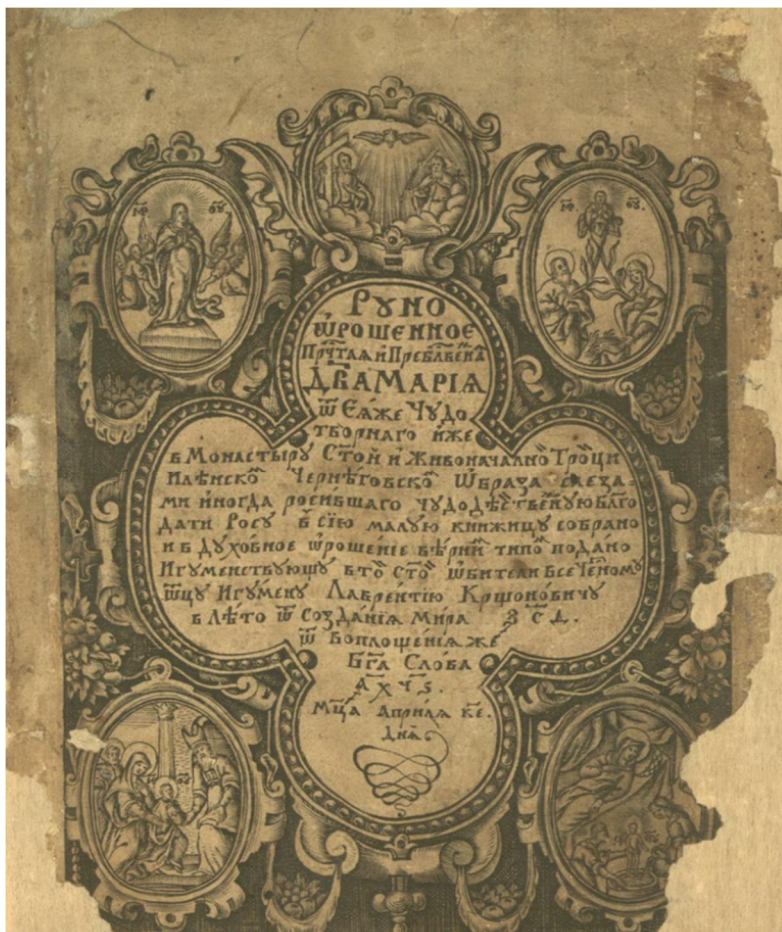 М҃Р Ѳ҃У.
М҃Р Ѳ҃У.
РУНО
ѾРОШЕННОЕ
ПРЧ҃ТАѦ И ПРЕБЛ҃ВЕН҃А
ДВ҃А МАРІѦ
ѿ Еѧ́же Чꙋдо
творнаго и́же
в Монастырꙋ Ст҃ой и Живоначално̃ Тро̃ци
Илѣнско̃ Чернѣговско̃ Ѡбраза слеза-
ми иногда росившаго чꙋдодѣ̃ствен̾ꙋю бл҃го
дати Росꙋ в сїю малꙋю книжицꙋ собрано
и в дꙋховное ѡрошенїе вѣрны̃ типо̃ подано
Игꙋменствꙋющꙋ в то̃ ст҃о̃ ѡбители Всечⷭ҇номꙋ
ѿцꙋ Игꙋменꙋ Лаврентїю Крщоновичꙋ
в Лѣто ѿ Созданїѧ мира ҂З С҃ Д.
ѿ воплощенїѧ же
Бг҃а Слова
҂А Х Ч҃ Ѕ.
Мц҃а Априлѧ к҃е.
Днѧ